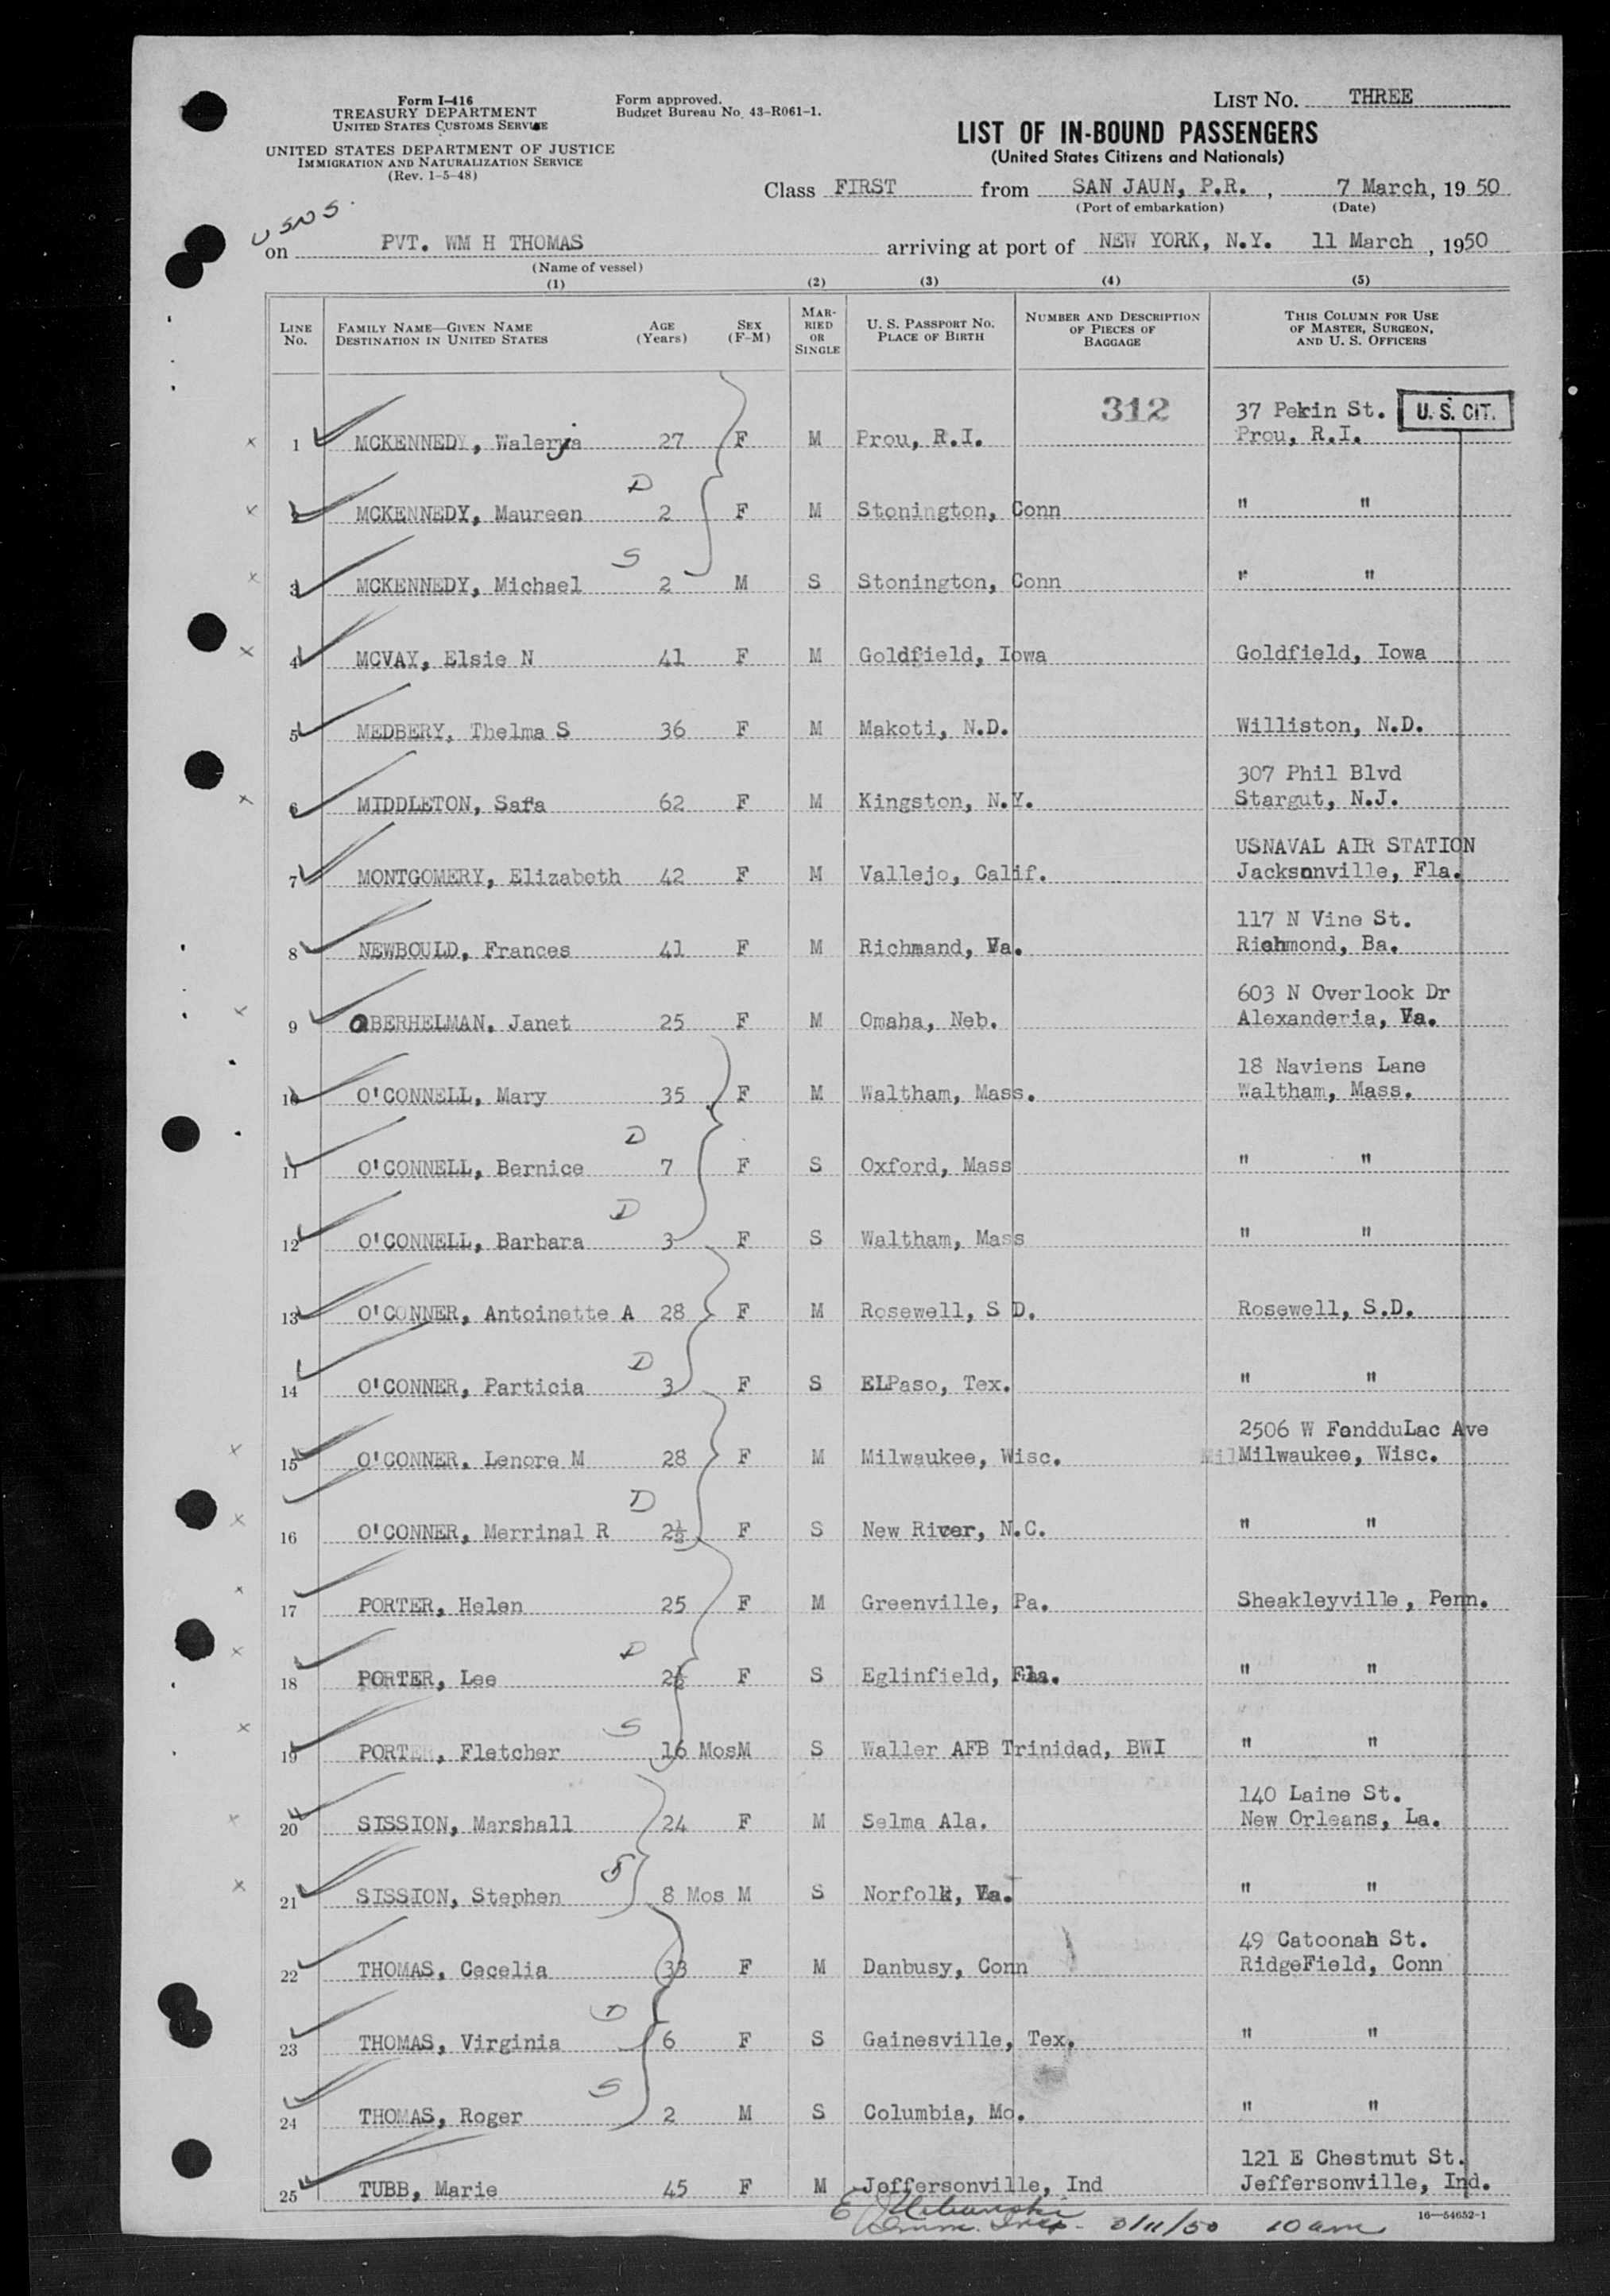 Form I-416
TREASURY DEPARTMENT
UNITED STATES CUSTOMS SERVICE
UNITED STATES DEPARTMENT OF JUSTICE
IMMIGRATION AND NATURALIZATION SERVICE
(Rev. 1-5-48)
Form approved.
Budget Bureau No. 43-R061-1.
LIST NO. THREE
LIST OF IN-BOUND PASSENGERS
(United States Citizens and Nationals)
Class FIRST from SAN JAUN, P.R., 7 March, 1950
(Port of embarkation) (Date)
USNS.
on PVT. WM H THOMAS arriving at port of NEW YORK, N.Y. 11 March, 1950
(Name of vessel)
(1) (2) (3) (4) (5)
LINE No. FAMILY NAME—GIVEN NAME DESTINATION IN UNITED STATES AGE (Years) SEX (F-M) MARRIED OR SINGLE U. S. PASSPORT NO. PLACE OF BIRTH NUMBER AND DESCRIPTION OF PIECES OF BAGGAGE THIS COLUMN FOR USE OF MASTER, SURGEON, AND U. S. OFFICERS
312 37 Pekin St. U. S. CIT.
1 MCKENNEDY, Walerya 27 F M Prou, R.I. Prou, R.I.
D
2 MCKENNEDY, Maureen 2 F M Stonington, Conn " "
S
3 MCKENNEDY, Michael 2 M S Stonington, Conn " "
4 MCVAY, Elsie N 41 F M Goldfield, Iowa Goldfield, Iowa
5 MEDBERY, Thelma S 36 F M Makoti, N.D. Williston, N.D.
307 Phil Blvd
6 MIDDLETON, Safa 62 F M Kingston, N.Y. Stargut, N.J.
USNAVAL AIR STATION
7 MONTGOMERY, Elizabeth 42 F M Vallejo, Calif. Jacksonville, Fla.
117 N Vine St.
8 NEWBOULD, Frances 41 F M Richmand, Va. Richmond, Ba.
603 N Overlook Dr
9 OBERHELMAN, Janet 25 F M Omaha, Neb. Alexanderia, Va.
18 Naviens Lane
10 O'CONNELL, Mary 35 F M Waltham, Mass. Waltham, Mass.
D
11 O'CONNELL, Bernice 7 F S Oxford, Mass " "
D
12 O'CONNELL, Barbara 3 F S Waltham, Mass " "
13 O'CONNER, Antoinette A 28 F M Rosewell, S D. Rosewell, S.D.
D
14 O'CONNER, Particia 3 F S ELPaso, Tex. " "
2506 W FondduLac Ave
15 O'CONNER, Lenore M 28 F M Milwaukee, Wisc. Milwaukee, Wisc.
D
16 O'CONNER, Merrinal R 2½ F S New River, N.C. " "
17 PORTER, Helen 25 F M Greenville, Pa. Sheakleyville, Penn.
D
18 PORTER, Lee 2½ F S Eglinfield, Fla. " "
S
19 PORTER, Fletcher 16 Mos M S Waller AFB Trinidad, BWI " "
140 Laine St.
20 SISSION, Marshall 24 F M Selma Ala. New Orleans, La.
S
21 SISSION, Stephen 8 Mos M S Norfolk, Va. " "
49 Catoonah St.
22 THOMAS, Cecelia 33 F M Danbusy, Conn RidgeField, Conn
D
23 THOMAS, Virginia 6 F S Gainesville, Tex. " "
S
24 THOMAS, Roger 2 M S Columbia, Mo. " "
121 E Chestnut St.
25 TUBB, Marie 45 F M Jeffersonville, Ind Jeffersonville, Ind.
Imm. Insp. 3/11/50 10 am
16—54652-1